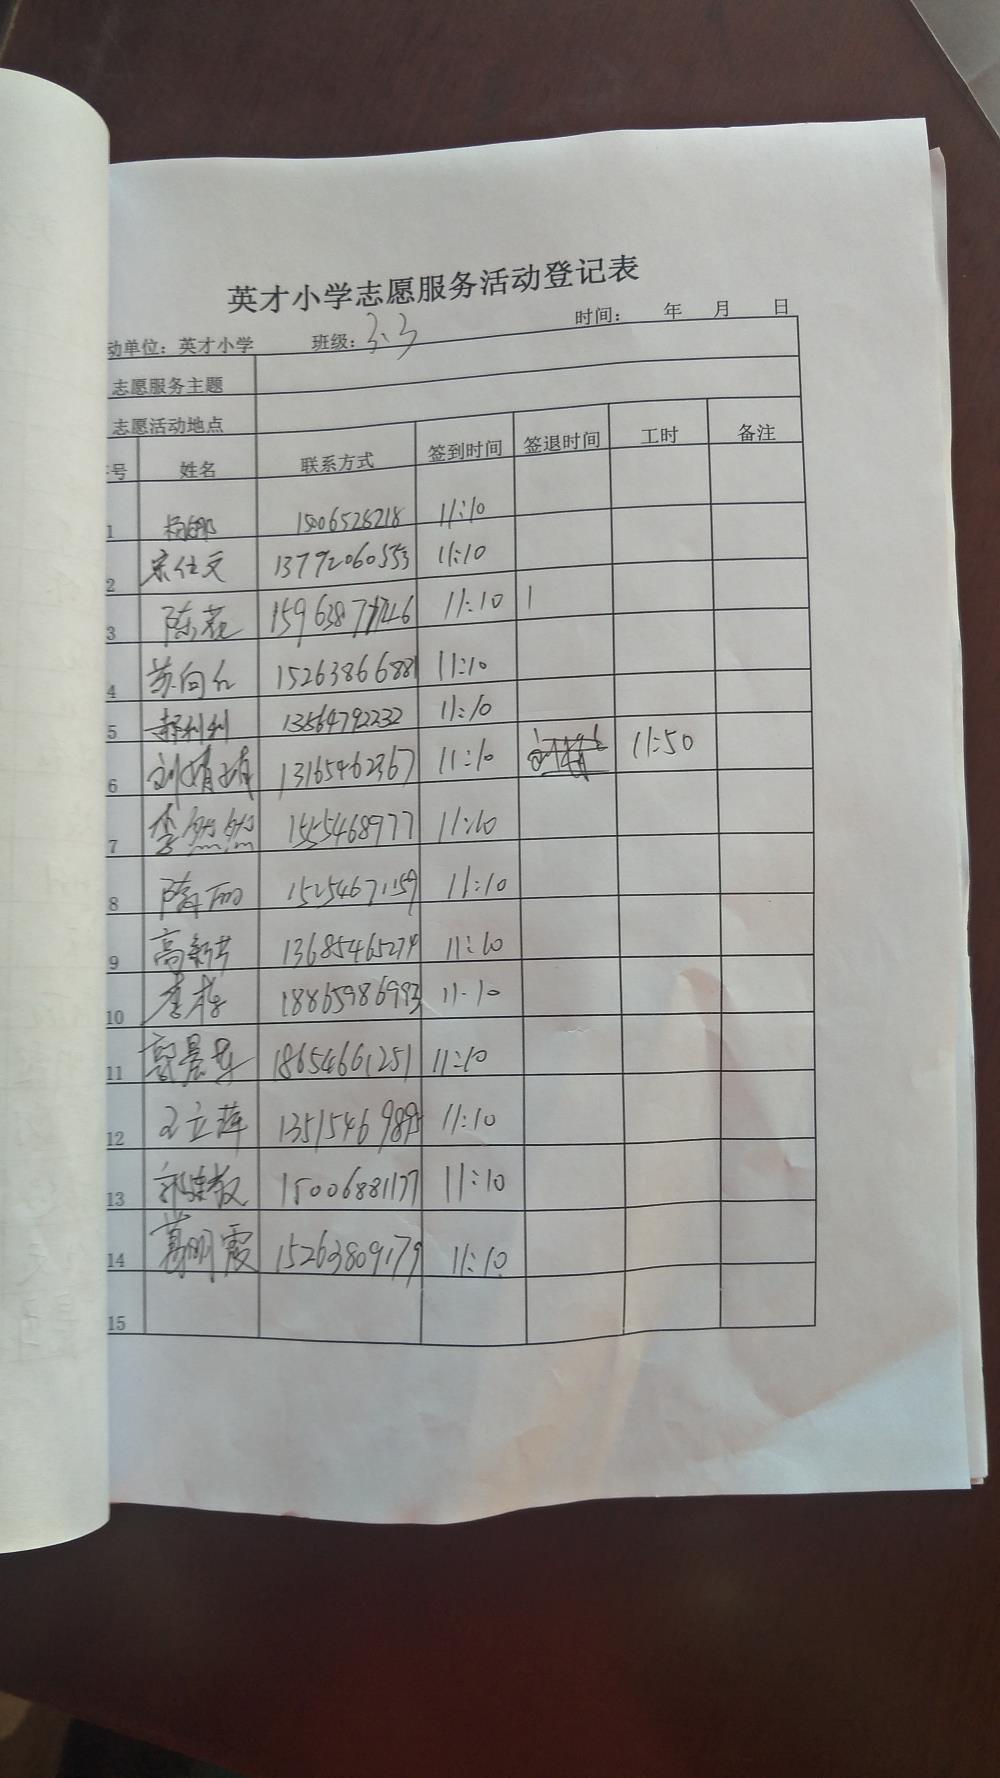 英才小学志愿服务活动登记表
动单位：英才小学 班级：3.3 时间： 年 月 日
志愿服务主题
志愿活动地点
号 姓名 联系方式 签到时间 签退时间 工时 备注
1 杨娜 15006528218 11:10
2 宋仕文 13792060553 11:10
3 陈花 11:10
4 苏向红 15263866881 11:10
5 郝利利 13864792232 11:10
6 刘婧婧 13165462367 11:10 11:50
7 李然然 1555468977 11:10
8 隋丽 15254671159 11:10
9 高新芳 13685465274 11:10
10 李梅 18865986983 11:10
11 郭景华 18654661251 11:10
12 王立萍 13515469895 11:10
13 15006881177 11:10
14 葛明霞 15263809179 11:10
15